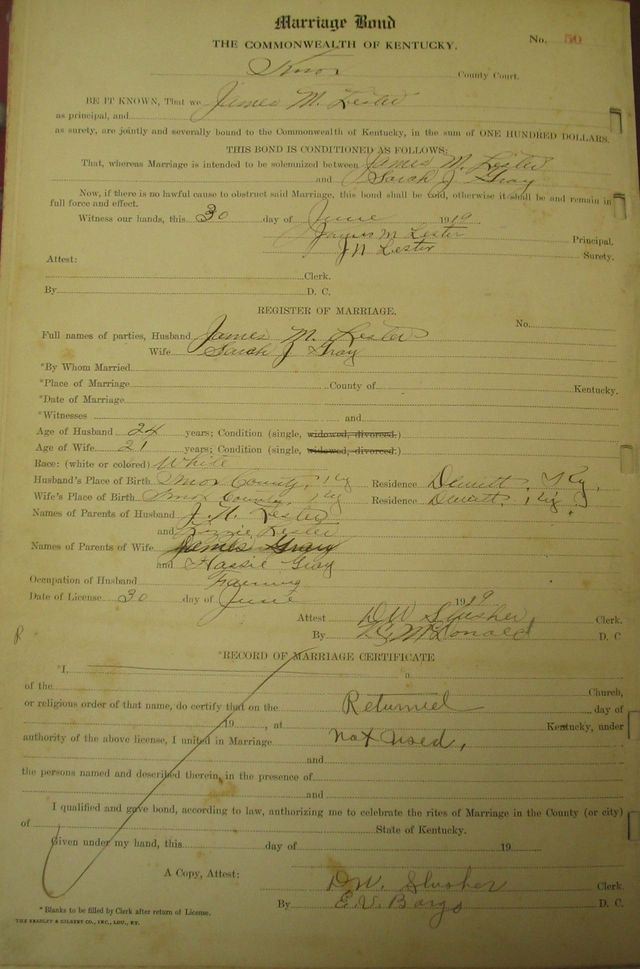 Marriage Bond
THE COMMONWEALTH OF KENTUCKY. No. 50
Knox County Court.
BE IT KNOWN, That we James M. Lester
as principal, and
as surety, are jointly and severally bound to the Commonwealth of Kentucky, in the sum of ONE HUNDRED DOLLARS.
THIS BOND IS CONDITIONED AS FOLLOWS:
That, whereas Marriage is intended to be solemnized between James M. Lester
and Sarah J Gray
Now, if there is no lawful cause to obstruct said Marriage, this bond shall be void, otherwise it shall be and remain in
full force and effect.
Witness our hands, this 30 day of June 1919
James M Lester Principal.
J N Lester Surety.
Attest:
Clerk.
By D. C.
REGISTER OF MARRIAGE.
No.
Full names of parties, Husband James M. Lester
Wife Sarah J Gray
*By Whom Married
*Place of Marriage County of Kentucky.
*Date of Marriage
*Witnesses and
Age of Husband 24 years; Condition (single, widowed, divorced.)
Age of Wife 21 years; Condition (single, widowed, divorced.)
Race: (white or colored) White
Husband's Place of Birth Knox County, Ky Residence Dewitt, Ky.
Wife's Place of Birth Knox County, Ky Residence Dewitt, Ky.
Names of Parents of Husband Lester
and Lizzie Lester
Names of Parents of Wife James Gray
and Hassie Gray
Occupation of Husband Farming
Date of License 30 day of June 1919
Attest D W Slusher Clerk.
By McDonald D. C
*RECORD OF MARRIAGE CERTIFICATE
*I, a
of the Church,
or religious order of that name, do certify that on the Returned day of
19 , at Kentucky, under
authority of the above license, I united in Marriage not used,
and
the persons named and described therein, in the presence of
and
I qualified and gave bond, according to law, authorizing me to celebrate the rites of Marriage in the County (or city)
of State of Kentucky.
Given under my hand, this day of 19
A Copy, Attest: D.W. Slusher Clerk.
By E.V. Bargo D. C.
* Blanks to be filled by Clerk after return of License.
THE BRADLEY & GILBERT CO., INC., LOU., KY.